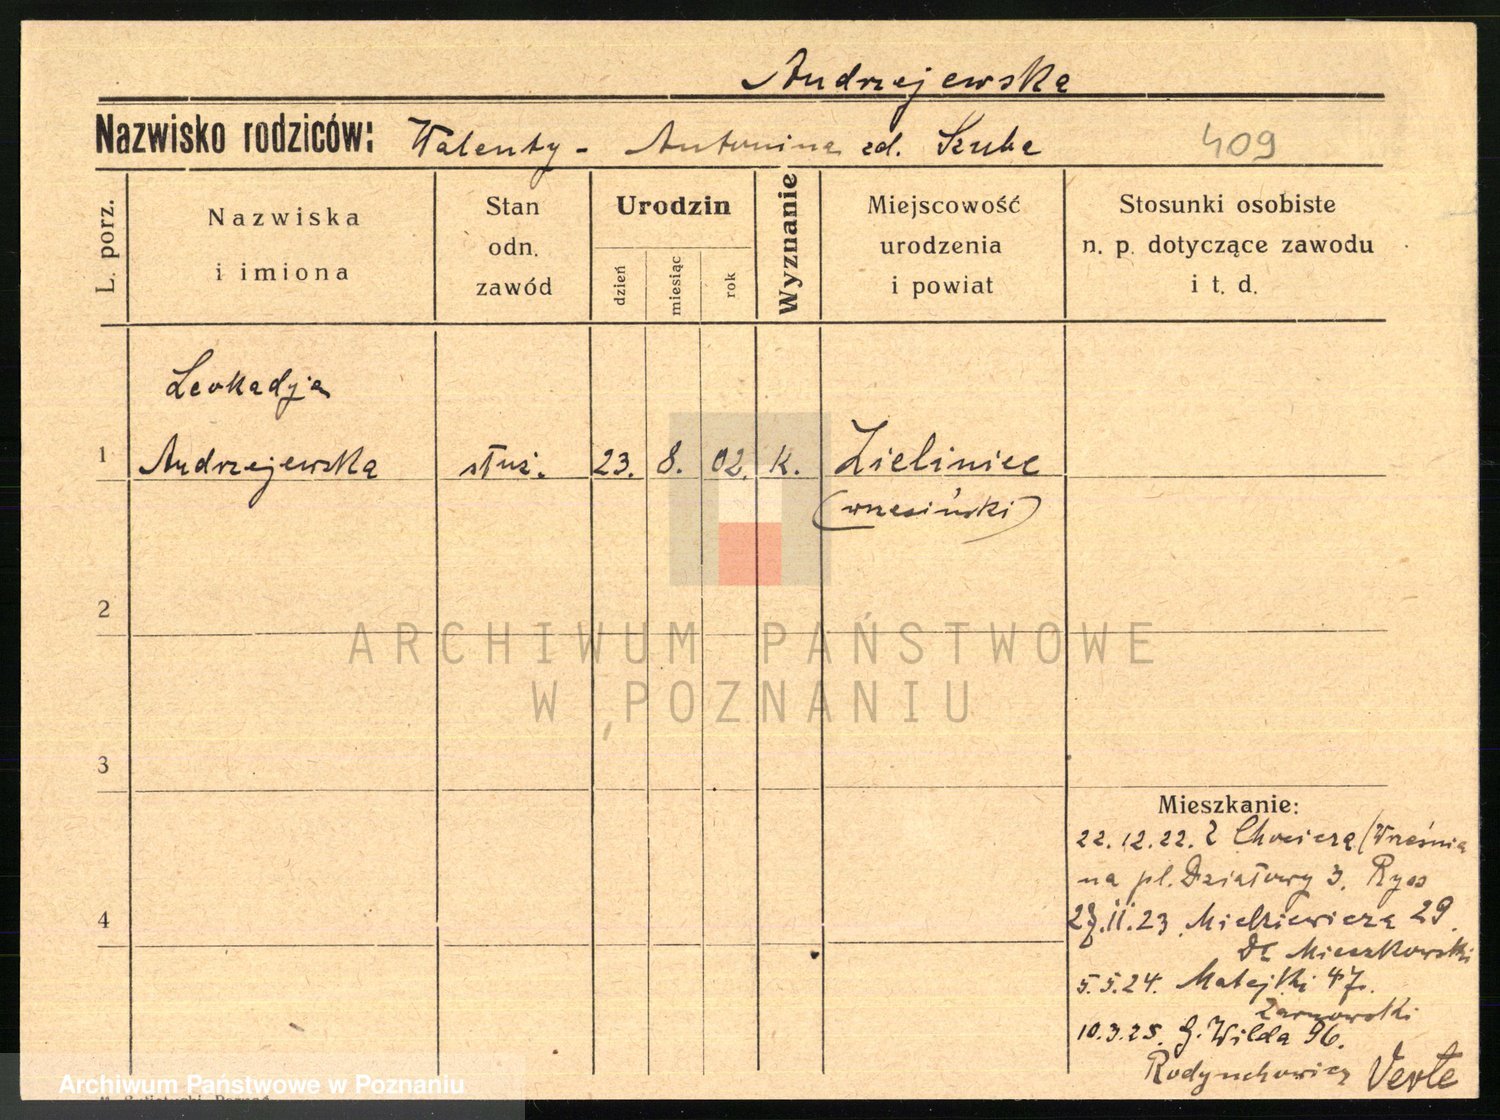 Andrzejewska
Nazwisko rodziców: Walenty - Antonina zd. Szuba 409
L. porz.
Nazwiska
i imiona
Stan
odn.
zawód
Urodzin
dzień
miesiąc
rok
Wyznanie
Miejscowość
urodzenia
i powiat
Stosunki osobiste
n. p. dotyczące zawodu
i t. d.
Leokadja
1 Andrzejewska służ. 23. 8. 02. k. Zieliniec
(wrzesiński)
2
ARCHIWUM PAŃSTWOWE
W POZNANIU
3
Mieszkanie:
22.12.22. Z Chocicza (Września
na pl. Działowy 3. Ryss
4
.11.23 Mickiewicza 29.
Mieczkowski
5.5.24. Matejki 47.
Żarnowski
10.3.25. G. Wilda 96.
Rodynchowicz Verte
Archiwum Państwowe w Poznaniu